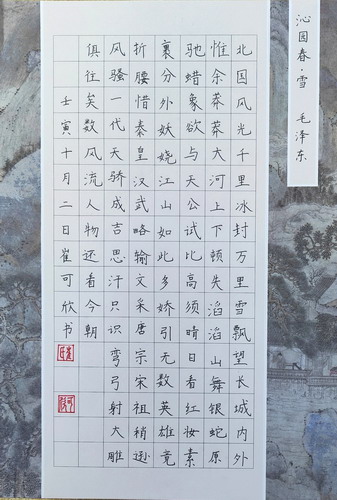 沁园春·雪 毛泽东
北国风光千里冰封万里雪飘望长城内外
惟余莽莽大河上下顿失滔滔山舞银蛇原
驰蜡象欲与天公试比高须晴日看红妆素
裹分外妖娆江山如此多娇引无数英雄竞
折腰惜秦皇汉武略输文采唐宗宋祖稍逊
风骚一代天骄成吉思汗只识弯弓射大雕
俱往矣数风流人物还看今朝
壬寅十月二日崔可欣书